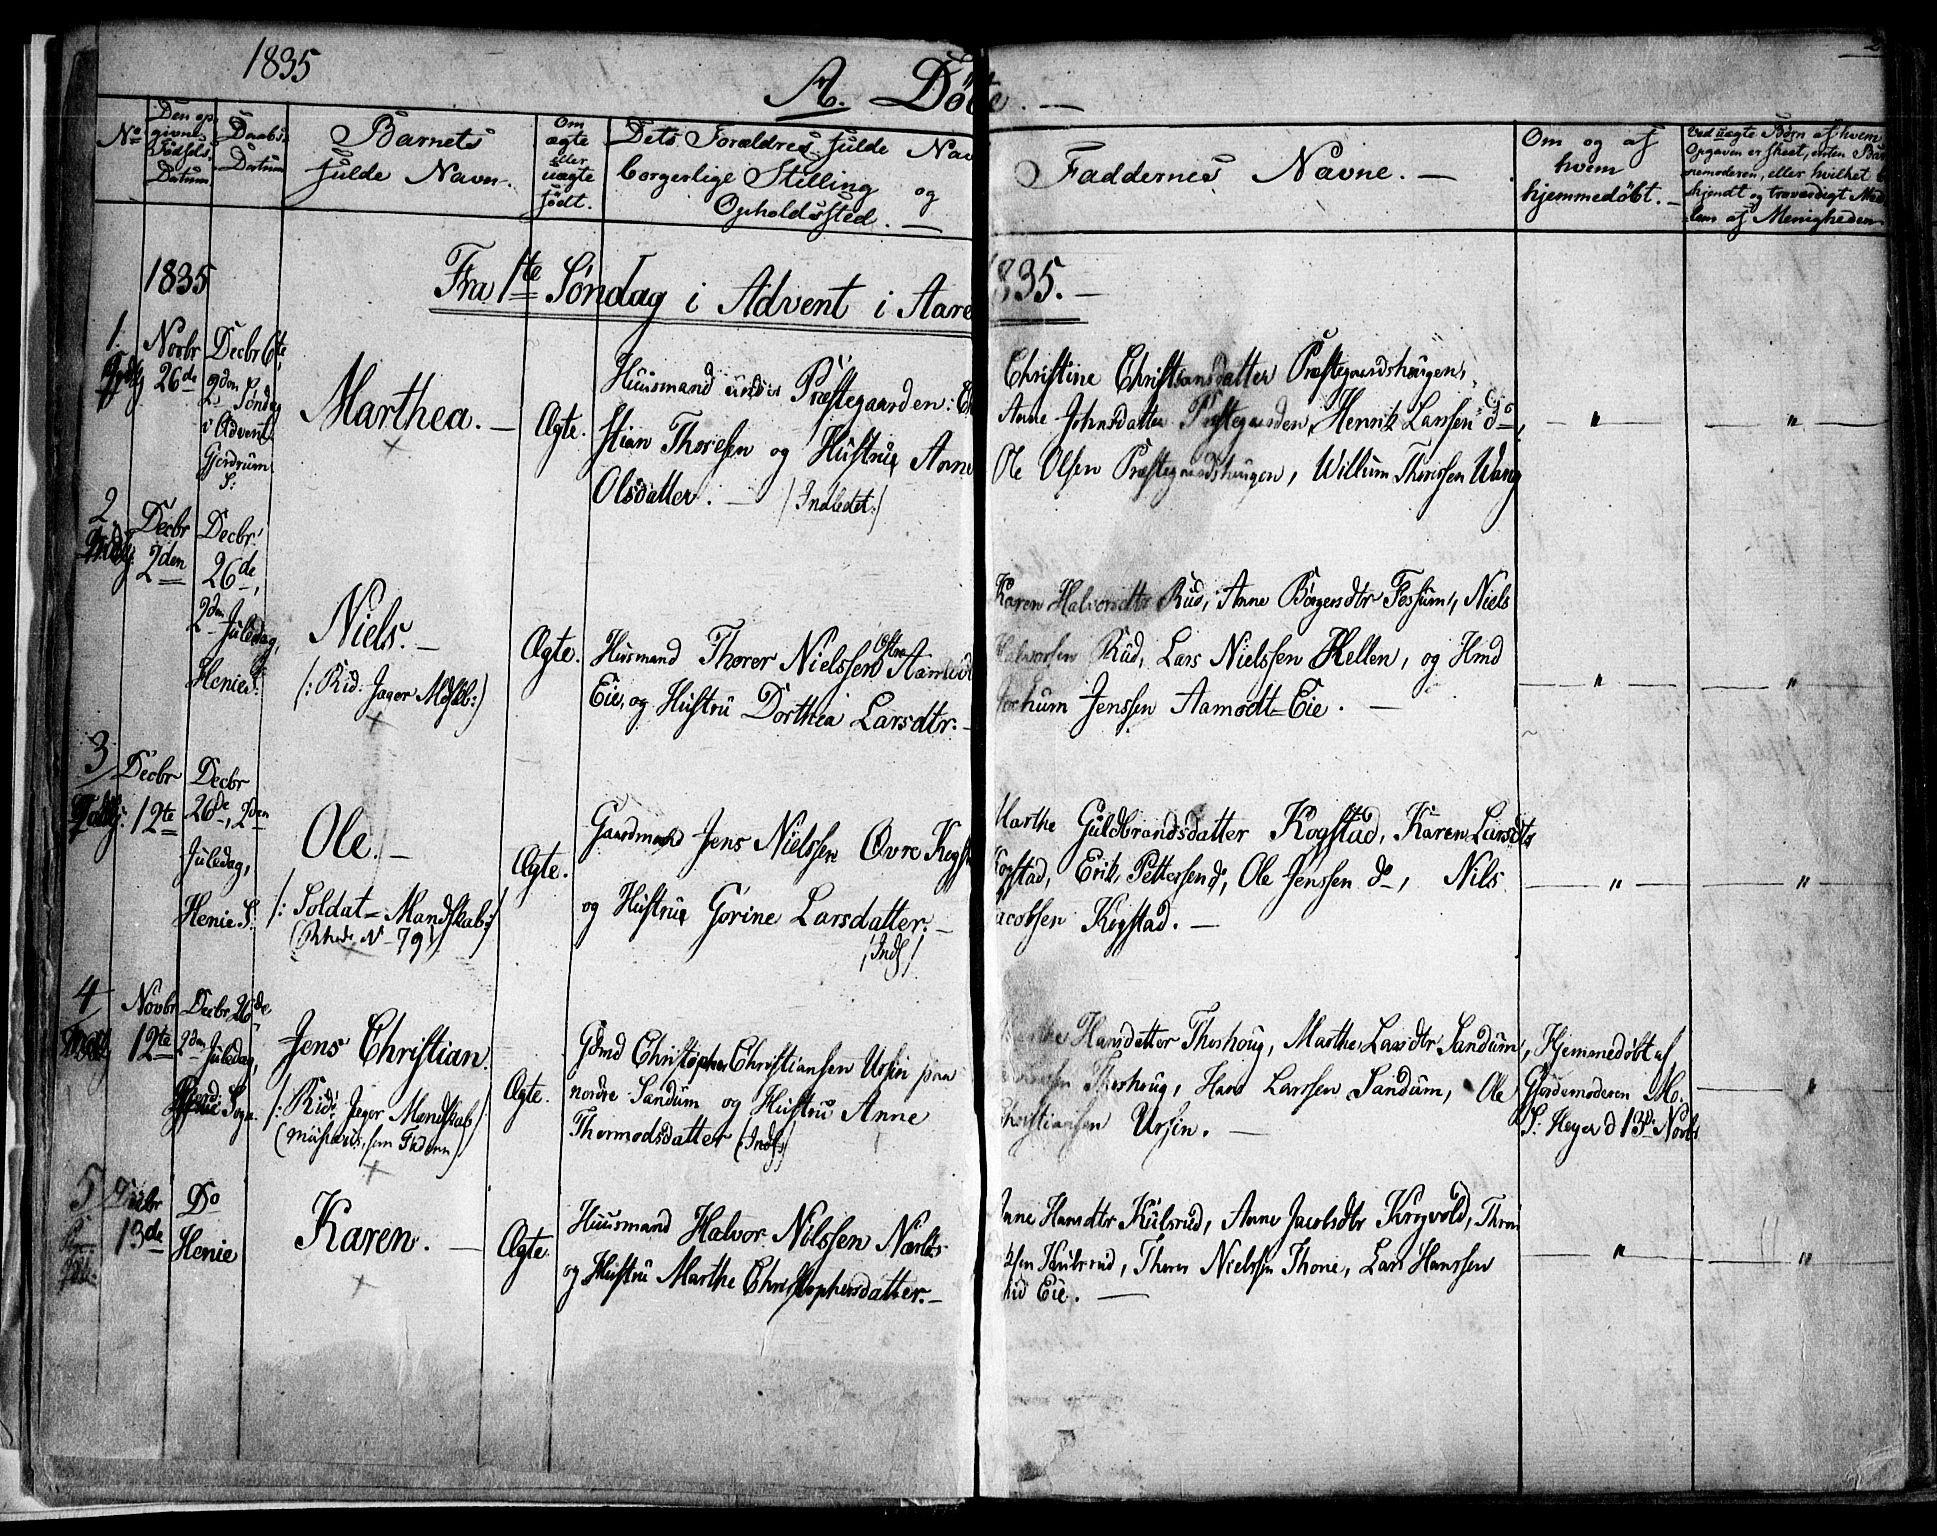 1835
A. Döbte. —
No
Den op-
givne
Födsels
Datum
Daabs-
Datum
Barnets
fulde Navn.
Om
ægte
eller
uægte
födt.
Dets Forældres fulde Nav
borgerlige Stilling og
Opholdssted. —
Faddernes Navne. —
Om og af
hvem
hjemmedöbt. —
Ved uægte Børn af hvem
Opgaven er skeet, enten Bar
nemoderen, eller hvilket
kjendt og troværdigt Med
lem af Menigheden
1835
Fra 1te Söndag i Advent i Aaret 1835. —
1.
Novbr
26de
Decbr 6te,
2den Söndag
i Advent.
Gjerdrum
S:
Marthea. —
Ægte.
Huusmand under Præstegaarden: Ch
stian Thoresen og Hustrue Anne
Olsdatter. — (Indledet:)
Christine Christiansdatter Præstegaardshaugen,
Anne Johnsdatter Præstegaarden, Henrik Larssen do,
Ole Olsen Præstegaardshaugen, Willum Thoressen Wang
— " — "
2
Decbr
2den
Decbr.
26de,
2den Juledag,
Henie S:
Niels. —
(: Rid: Jager Mdskb:)
Ægte.
Huusmand Thorer Nielssen Östre Aamodt
Eie, og Hustru Dorthea Larsdtr. —
Karen Halvorsdtr Rud, Anne Börgersdtr Fossum, Niels
Halvorsen Rud, Lars Nielssen Hellen, og Hmd
Jochum Jenssen Aamodt-Eie. —
— " — "
3
Decbr
12te
Decbr
26de, 2den
Juledag,
Henie S:
Ole. —
(: Soldat-Mandskab:)
No 79
Ægte.
Gaardmand Jens Nielssen Övre Kogst
og Hustrue Görine Larsdatter. —
(Indl)
Marthe Guldbrandsdatter Kogstad, Karen Larsdtr
Kogstad, Erik Pettersen do, Ole Jenssen do, Nils
Jacobsen Kogstad. —
— " — "
4
Novbr
12te
Decbr 26de
2den Juledag,
Sogn
Jens Christian.
(: Rid: Jager Mandskab)
Ægte.
Gdmd Christopher Christiansen Ursin paa
nordre Sandum og Hustru Anne
Thormodsdatter (Indl:)
Hansdatter Thoshoug, Marthe Larsdtr Sandum,
Thoshoug, Hans Larssen Sandum, Ole
Christiansen Ursin. —
Hjemmedöbt af
Gjordemoderen M.
S. Heyer d 13de Novbr
— "
5
Decbr
13de
Do
Henie
Karen. —
Ægte
Huusmand Halvor Nilssen
og Hustru Marthe Christophersdatter. —
Anne Hansdtr Kulsrud, Anne Jacobsdtr Krogvold,
Kulsrud, Thorer Nielssen Thone, Lars Hanssen
Eie. —
— " — "